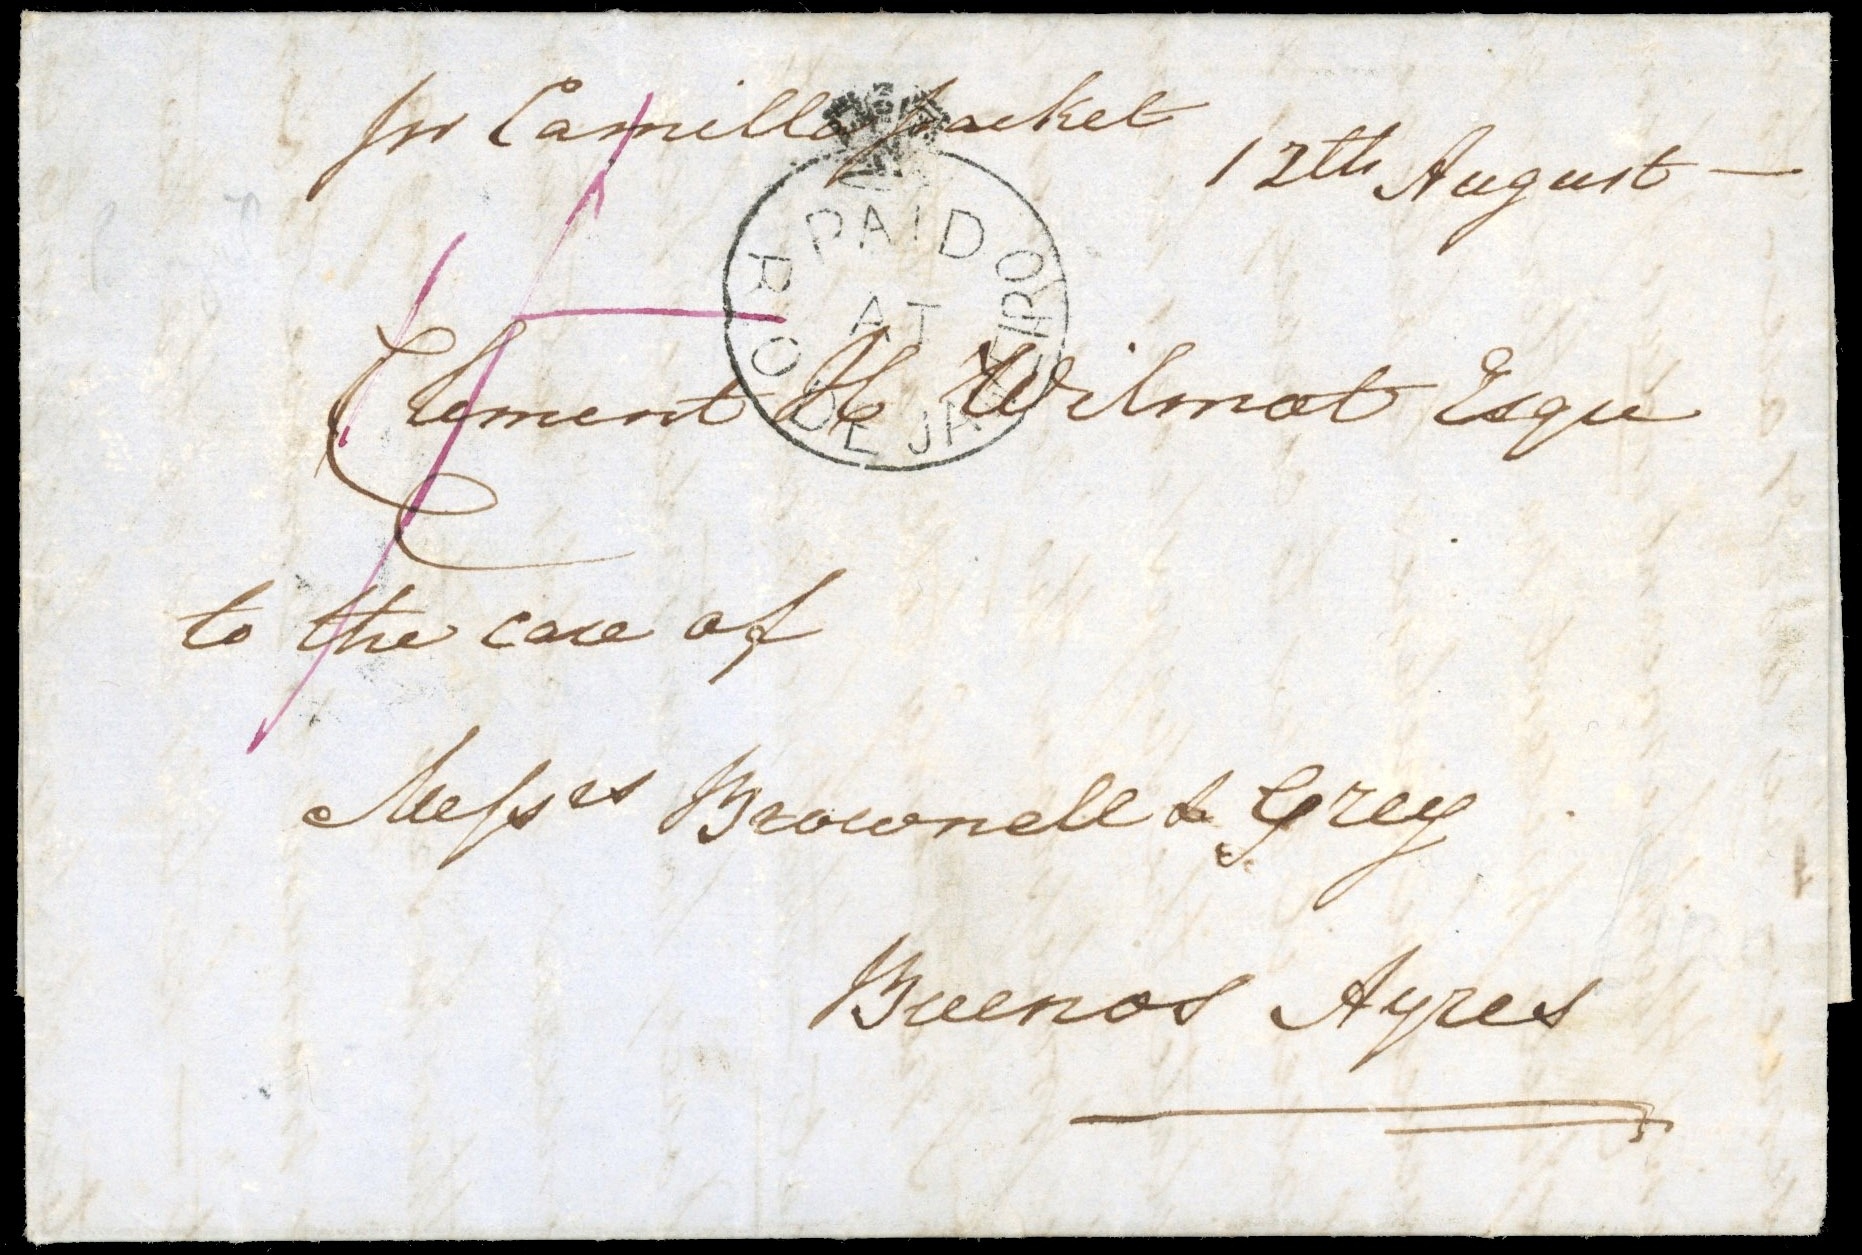 pr Camilla packet 12th August —
PAID
AT
RIO DE JANEIRO
Clement H Wilmot Esqre
to the care of
Messrs Brownell & Grey
Buenos Ayres